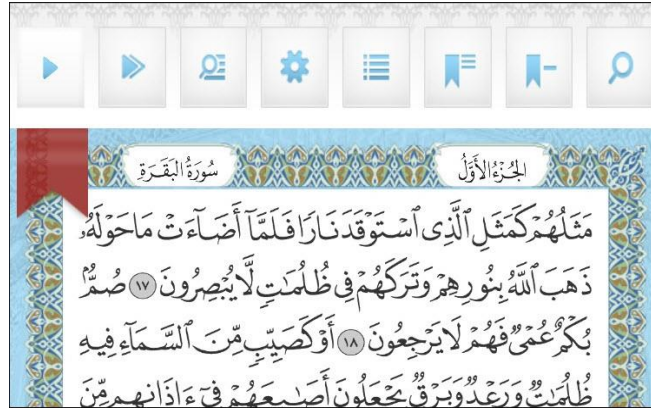 الجُزْءُ الأَوَّلُ
سُورَةُ البَقَرَةِ
مَثَلُهُمْ كَمَثَلِ ٱلَّذِى ٱسْتَوْقَدَ نَارًا فَلَمَّآ أَضَآءَتْ مَا حَوْلَهُۥ
ذَهَبَ ٱللَّهُ بِنُورِهِمْ وَتَرَكَهُمْ فِى ظُلُمَٰتٍ لَّا يُبْصِرُونَ ١٧ صُمٌّۢ
بُكْمٌ عُمْىٌ فَهُمْ لَا يَرْجِعُونَ ١٨ أَوْ كَصَيِّبٍ مِّنَ ٱلسَّمَآءِ فِيهِ
ظُلُمَٰتٌ وَرَعْدٌ وَبَرْقٌ يَجْعَلُونَ أَصَٰبِعَهُمْ فِىٓ ءَاذَانِهِم مِّنَ